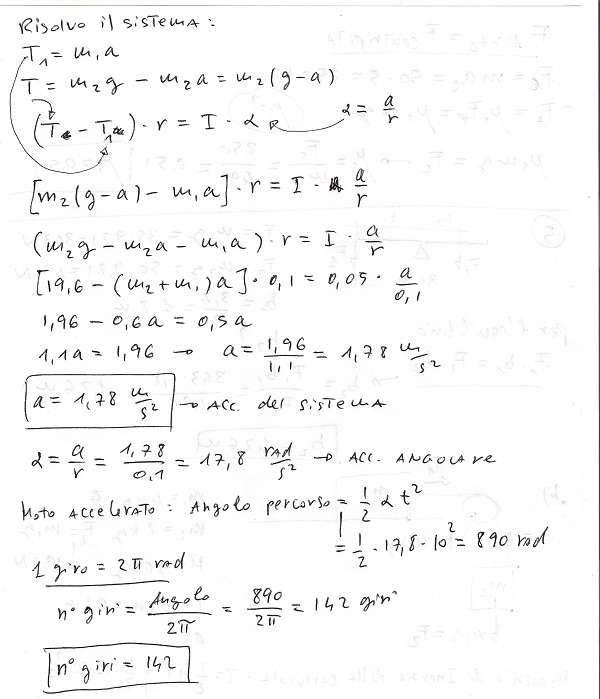 Risolvo il sistema:
T₁ = m₁a
T = m₂g - m₂a = m₂(g-a)
(T - T₁) · r = I · α α = a/r
[m₂(g-a) - m₁a] · r = I · a/r
(m₂g - m₂a - m₁a) · r = I · a/r
[19,6 - (m₂+m₁)a] · 0,1 = 0,05 · a/0,1
1,96 - 0,6a = 0,5a
1,1a = 1,96 → a = 1,96/1,1 = 1,78 m/s²
a = 1,78 m/s² → ACC. del sistema
α = a/r = 1,78/0,1 = 17,8 rad/s² → ACC. ANGOLARE
Moto Accelerato: Angolo percorso = 1/2 α t²
= 1/2 · 17,8 · 10² = 890 rad
1 giro = 2π rad
n° giri = Angolo/2π = 890/2π = 142 giri
n° giri = 142